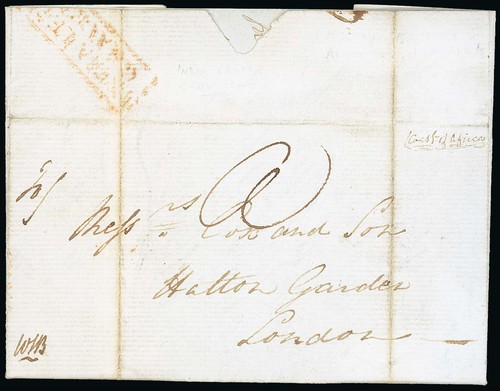 (Coast of Africa)
Mess rs Cox and Son
Hatton Garden
London
WB